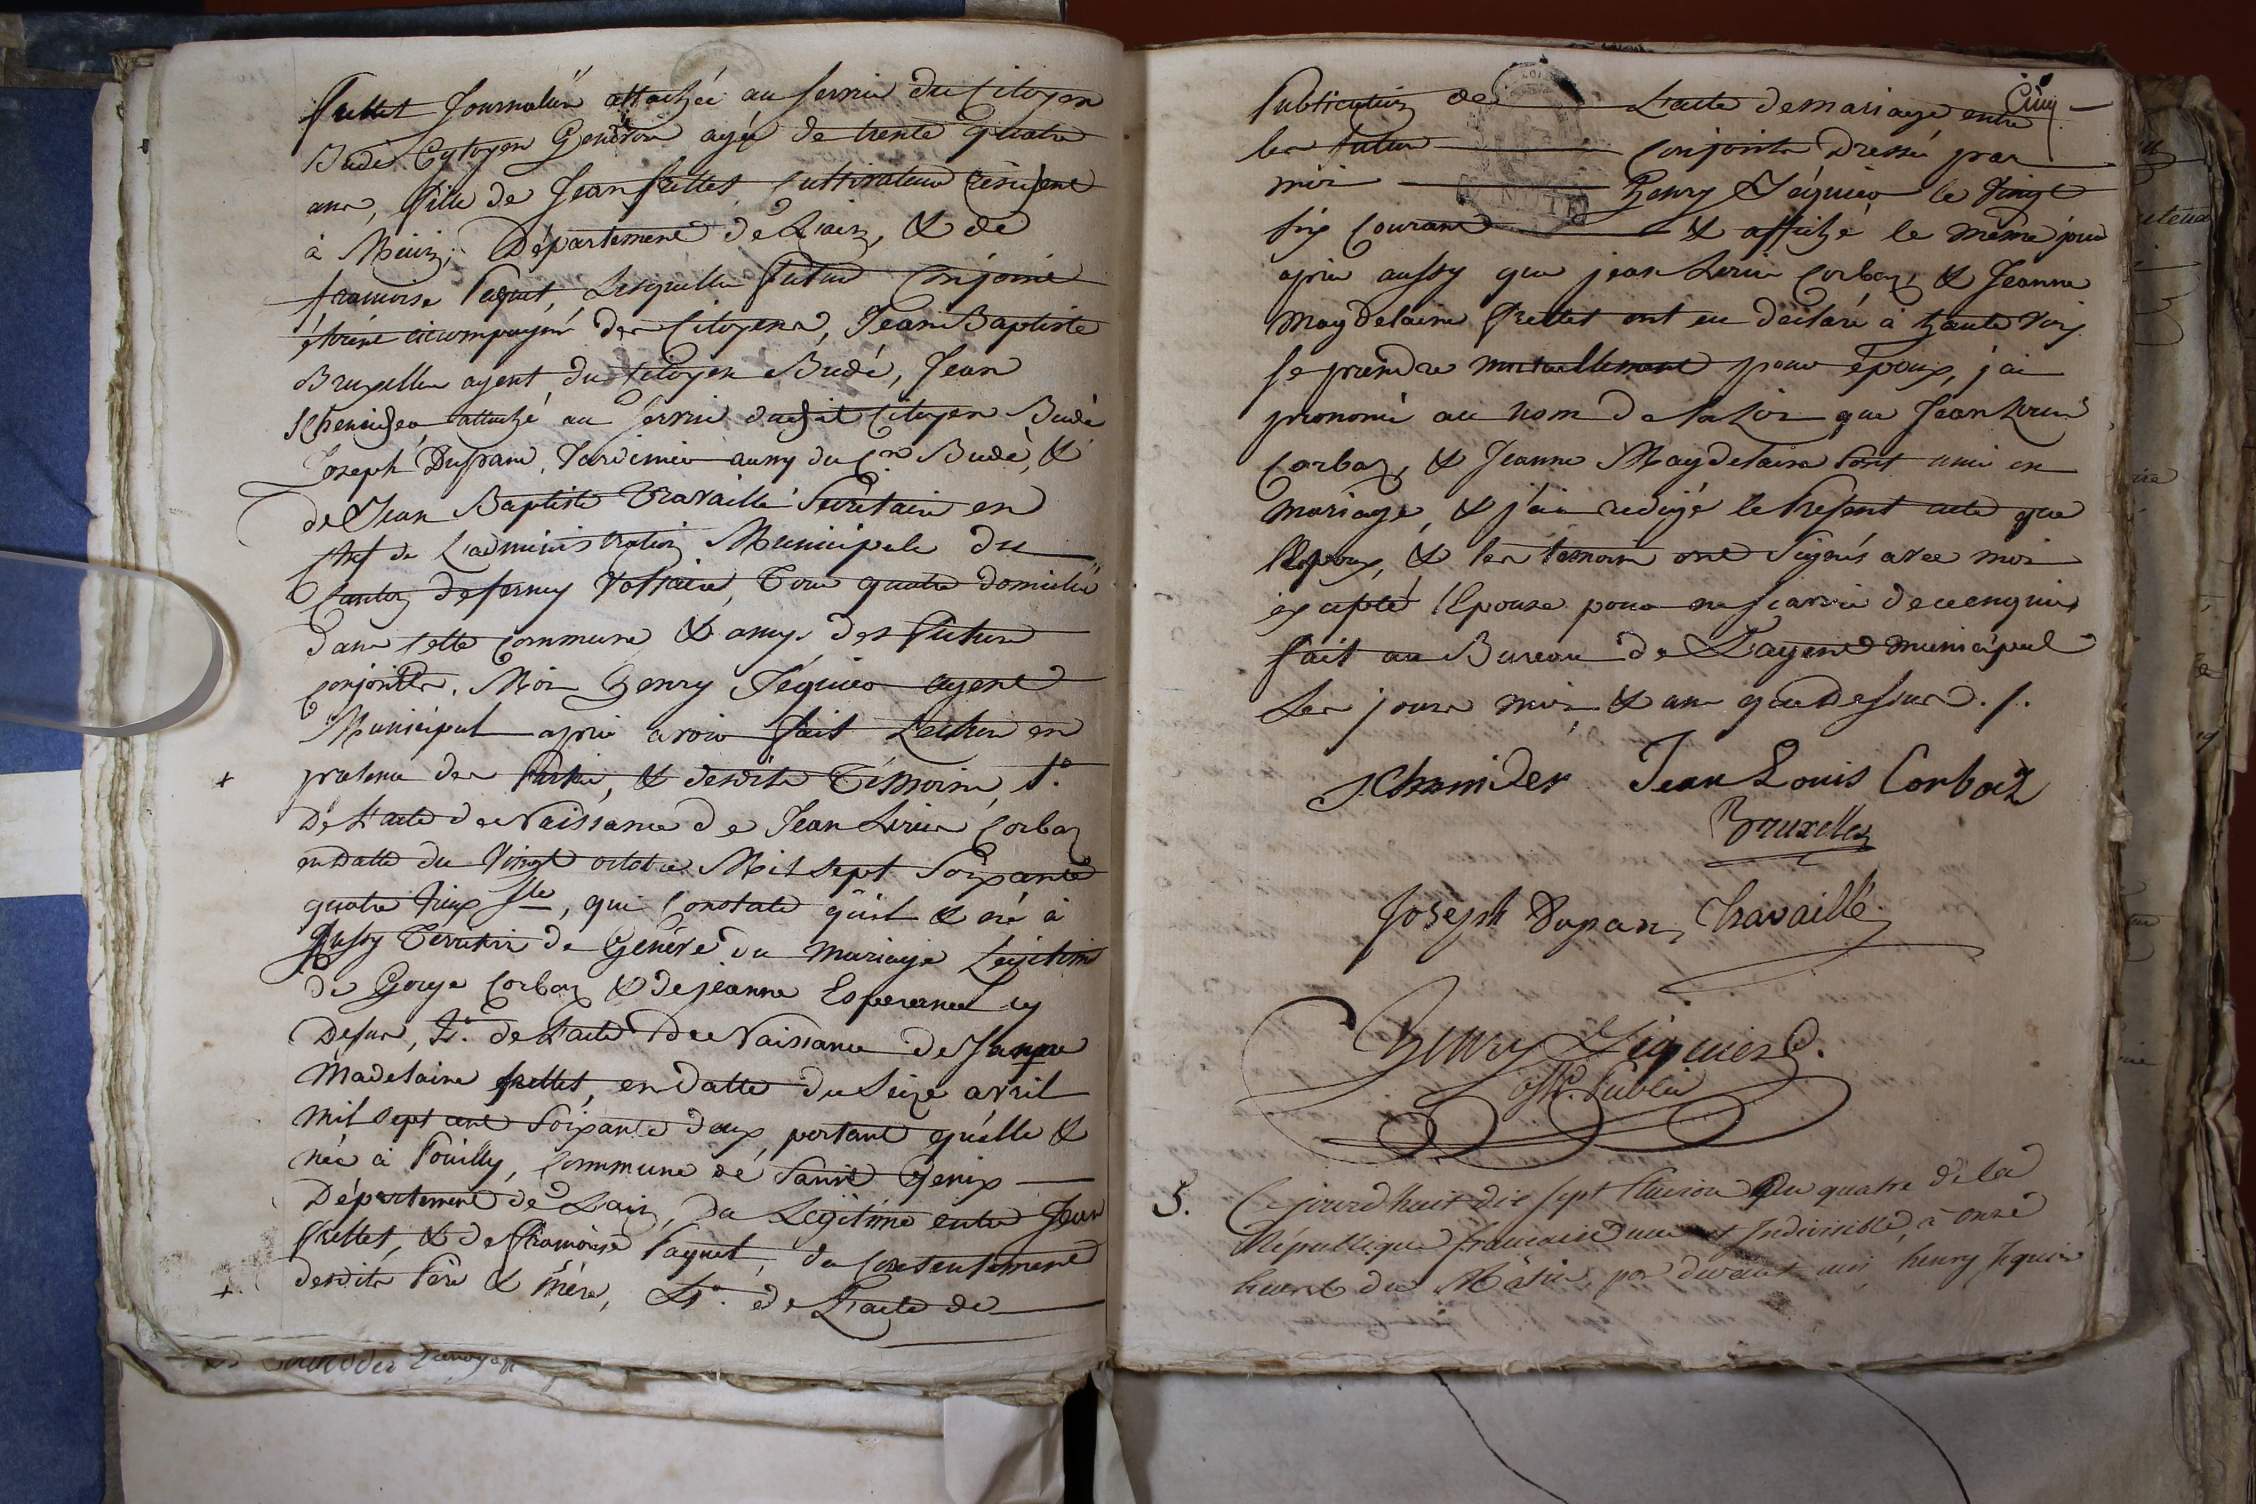 frettet Journalier attachée au servic du Citoyen
Budé Cytoyen Genevois agée de trente quatre
ans, fille de Jean frettet, Cultivateur résident
à Meirin, Département de L'ain, & de
francoise Paquet, Lesquelles futur Conjoint
étoient accompagné des Citoyens, Jean Baptiste
Bruxelles agent du Citoyen Budé, Jean
Schmider attaché au servic dudit Citoyen Budé
Joseph Dupand, Jardinier aumy du Cn Budé, &
de Jean Baptiste Travaillé Secrétaire en
chef de L'administration Municipale du
Canton de ferney Voltaire, Tous quatre domicilié
dans cette commune & amys des futurs
conjoints. Moi Henry Jéquier agent
Municipal après avoir fait Lecture en
presence des Parties, & desdits Témoins, 1°
De L'acte de Naissance de Jean Louis Corbaz
en datte du Vingt octobre Mil sept Soixante
quatre, qui Constate qu'il & né à
Jussy Territoir de Genève du mariage Légitime
de Gorge Corbaz & de jeanne Esperance Ley
Defur, 2°. de L'acte de Naissance de Jeanne
Madelaine frettet, en datte du Seize avril
mil sept cent Soixante deux, portant qu'elle &
née à Pouilly, commune de Saint Genix
Département de L'ain, du Légitime entre Jean
frettet, & de francoise Paquet, du consentement
desdits Père & mère, 3°. de L'acte de
Cinq
Publication de L'acte de mariage entre
les futurs Conjoints Dressé par
moi Henry Jéquier le Vingt
six Courant & affiché le même jour
après aussy que jean Louis Corbaz, & Jeanne
Magdelaine frettet ont eu déclaré à haute Voix
se prendre mutuellement pour époux, j'ai
prononcé au nom de la Loi que Jean Louis
Corbaz, & Jeanne Magdelaine sont unis en
mariage, & j'ai redigé le present acte que
l'Epoux, & les temoins ont signés avec moi
excepté l'Epouse pour ne scavoir de ce enquis
fait au Bureau de L'agent municipal
Les jours mois & an que Dessus ./.
Schmider Jean Louis Corbaz
Bruxelles
Joseph Dupan Travaillé
Henry Jéquier
off. Public
5. Ce jourd'huit dix sept an quatre de la
République francaise une et Indivisible, à onze
heures du Matin, par devant moi henry Jequier